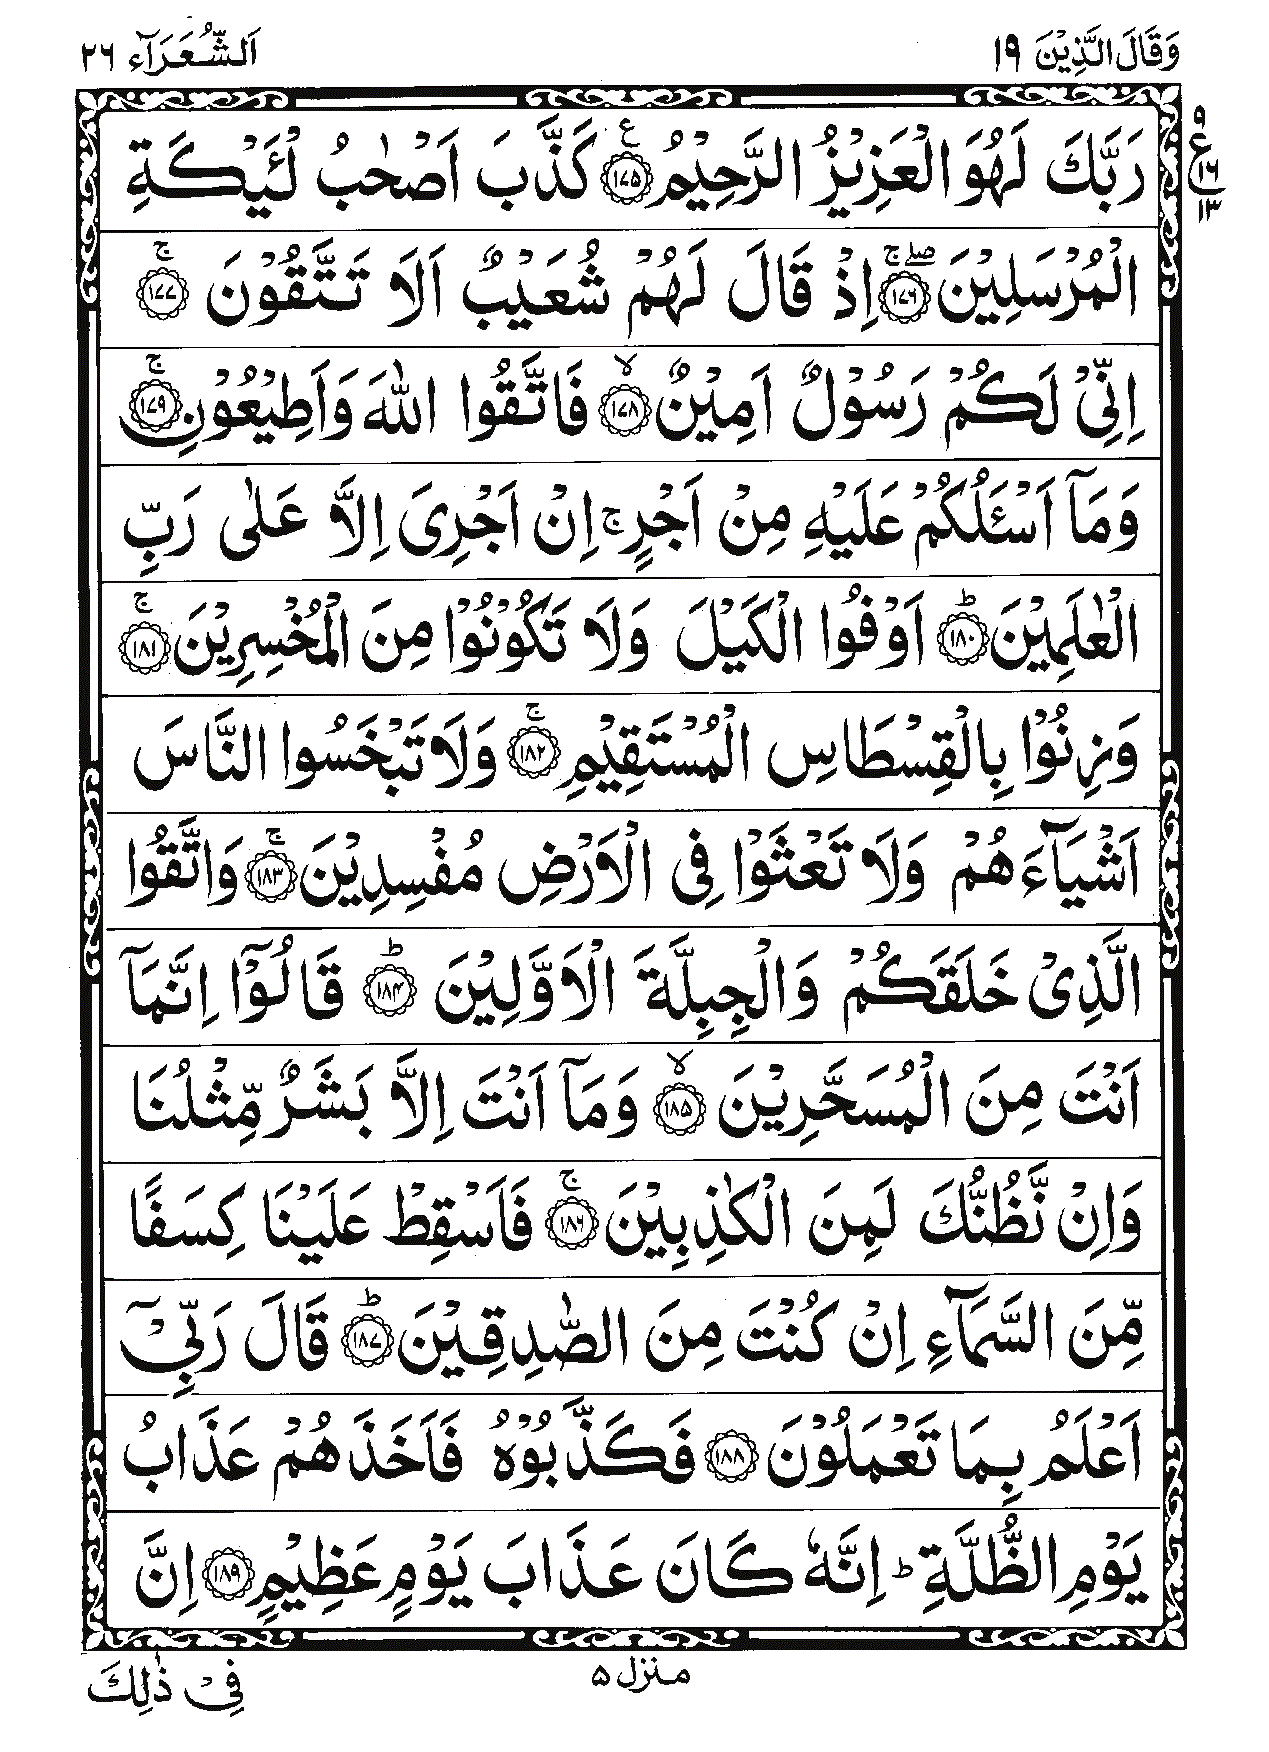 وَقَالَ الَّذِيْنَ ١٩
اَلشُّعَرَآء ٢٦
رَبَّكَ لَهُوَ الْعَزِيْزُ الرَّحِيْمُ ﴿١٧٥﴾ ع كَذَّبَ اَصْحٰبُ لْـَٔيْكَةِ
و ع ١٦ ١٣
الْمُرْسَلِيْنَ ﴿١٧٦﴾ صلے ج اِذْ قَالَ لَهُمْ شُعَيْبٌ اَلَا تَتَّقُوْنَ ﴿١٧٧﴾ ج
اِنِّىْ لَكُمْ رَسُوْلٌ اَمِيْنٌ ﴿١٧٨﴾ لا فَاتَّقُوا اللّٰهَ وَاَطِيْعُوْنِ ﴿١٧٩﴾ ج
وَمَآ اَسْـَٔلُكُمْ عَلَيْهِ مِنْ اَجْرٍ ج اِنْ اَجْرِىَ اِلَّا عَلٰى رَبِّ
الْعٰلَمِيْنَ ﴿١٨٠﴾ ط اَوْفُوا الْكَيْلَ وَلَا تَكُوْنُوْا مِنَ الْمُخْسِرِيْنَ ﴿١٨١﴾ ج
وَزِنُوْا بِالْقِسْطَاسِ الْمُسْتَقِيْمِ ﴿١٨٢﴾ ج وَلَا تَبْخَسُوا النَّاسَ
اَشْيَآءَهُمْ وَلَا تَعْثَوْا فِى الْاَرْضِ مُفْسِدِيْنَ ﴿١٨٣﴾ ج وَاتَّقُوا
الَّذِىْ خَلَقَكُمْ وَالْجِبِلَّةَ الْاَوَّلِيْنَ ﴿١٨٤﴾ ط قَالُوْٓا اِنَّمَآ
اَنْتَ مِنَ الْمُسَحَّرِيْنَ ﴿١٨٥﴾ لا وَمَآ اَنْتَ اِلَّا بَشَرٌ مِّثْلُنَا
وَاِنْ نَّظُنُّكَ لَمِنَ الْكٰذِبِيْنَ ﴿١٨٦﴾ ج فَاَسْقِطْ عَلَيْنَا كِسَفًا
مِّنَ السَّمَآءِ اِنْ كُنْتَ مِنَ الصّٰدِقِيْنَ ﴿١٨٧﴾ ط قَالَ رَبِّىْٓ
اَعْلَمُ بِمَا تَعْمَلُوْنَ ﴿١٨٨﴾ فَكَذَّبُوْهُ فَاَخَذَهُمْ عَذَابُ
يَوْمِ الظُّلَّةِ ط اِنَّهٗ كَانَ عَذَابَ يَوْمٍ عَظِيْمٍ ﴿١٨٩﴾ اِنَّ
منزل ٥
فِىْ ذٰلِكَ